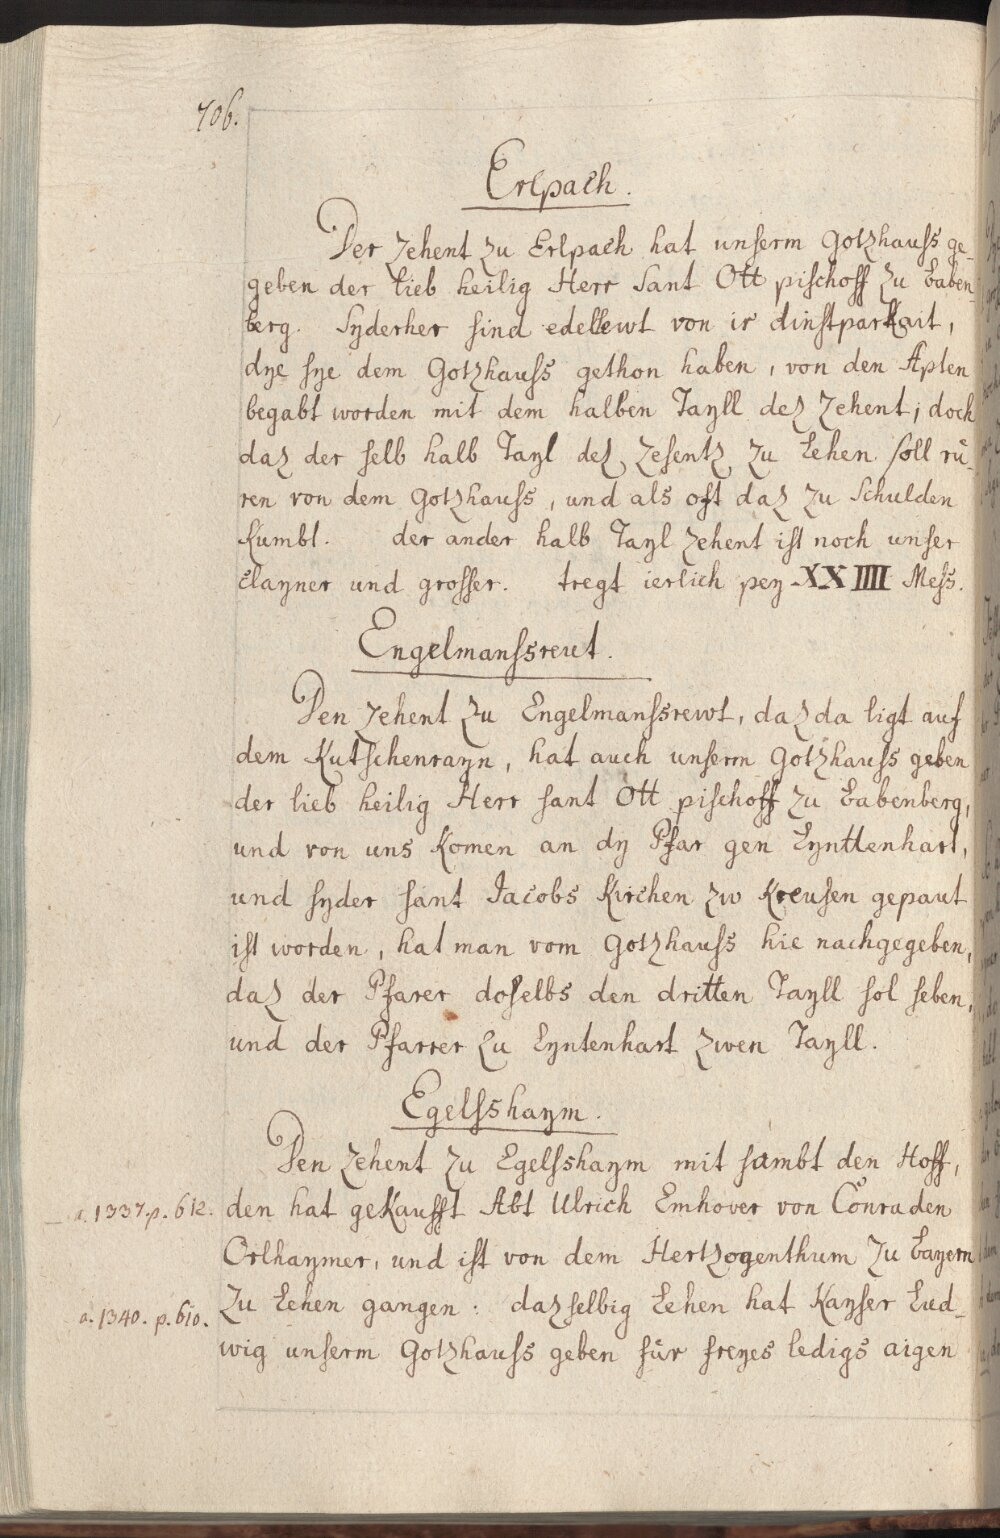 706.
Erlpach.
Der zehent zu Erlpach hat unserm Gotzhauss ge-
geben der lieb heilig Herr Sant Ott pischoff zu Baben-
berg. Syderher sind edellewt von ir dinstparkait,
dye sye dem Gotzhauss gethon haben, von den Apten
begabt worden mit dem halben Tayll dez zehent; doch
daz der selb halb Tayl dez zehentz zu Lehen soll rü-
ren von dem Gotzhauss, und als oft daz zu Schulden
kumbt. der ander halb Tayl zehent ist noch unser
clayner und grosser. tregt ierlich pey XXIIII Mess.
Engelmanssreut.
Den zehent zu Engelmanssrewt, daz da ligt auf
dem Kutschenrayn, hat auch unserm Gotzhauss geben
der lieb heilig Herr sant Ott pischoff zu Babenberg,
und von uns komen an dy Pfar gen Lynttenhart,
und syder sant Jacobs Kirchen zw Kreusen gepaut
ist worden, hat man vom Gotzhauss hie nachgegeben,
daz der Pfarer doselbs den dritten Tayll sol heben,
und der Pfarrer zu Lyntenhart zwen Tayll.
Egelsshaym.
Den zehent zu Egelsshaym mit sambt den Hoff,
a. 1337. p. 612. den hat gekaufft Abt Ulrich Emhover von Conraden
Orthaymer, und ist von dem Hertzogenthum zu Bayern
a. 1340. p. 610. zu Lehen gangen: dazselbig Lehen hat Kayser Lud-
wig unserm Gotzhauss geben für freyes ledigs aigen